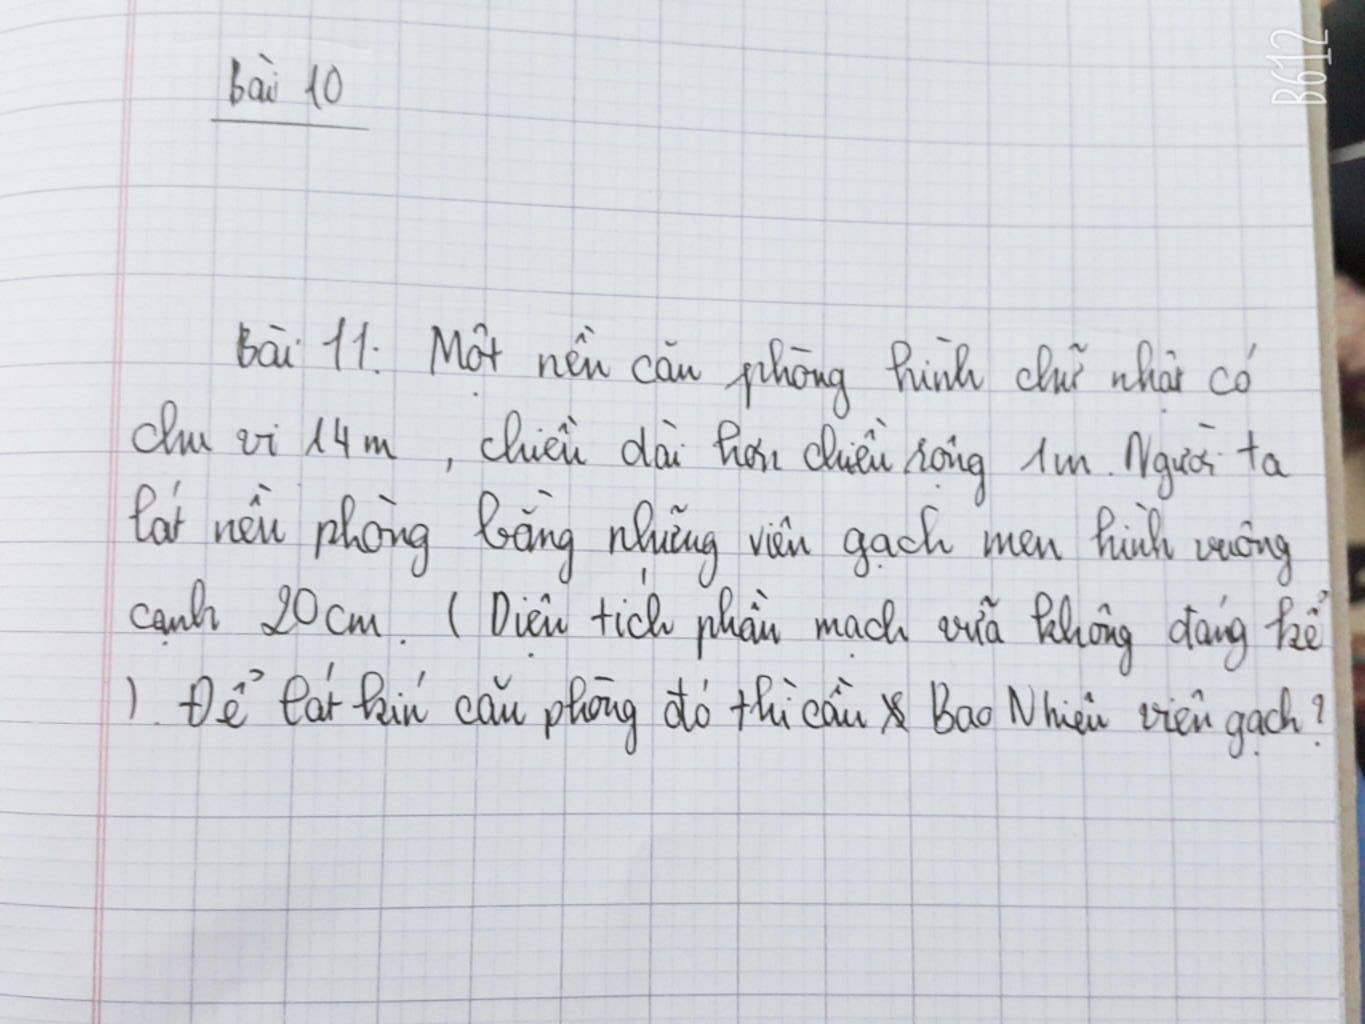 B612
Bài 10
Bài 11: Một nền căn phòng hình chữ nhật có
chu vi 14m, chiều dài hơn chiều rộng 1m. Người ta
lát nền phòng bằng những viên gạch men hình vuông
cạnh 20cm. (Diện tích phần mạch vữa không đáng kể
). Để lát kín căn phòng đó thì cần Bao Nhiêu viên gạch?